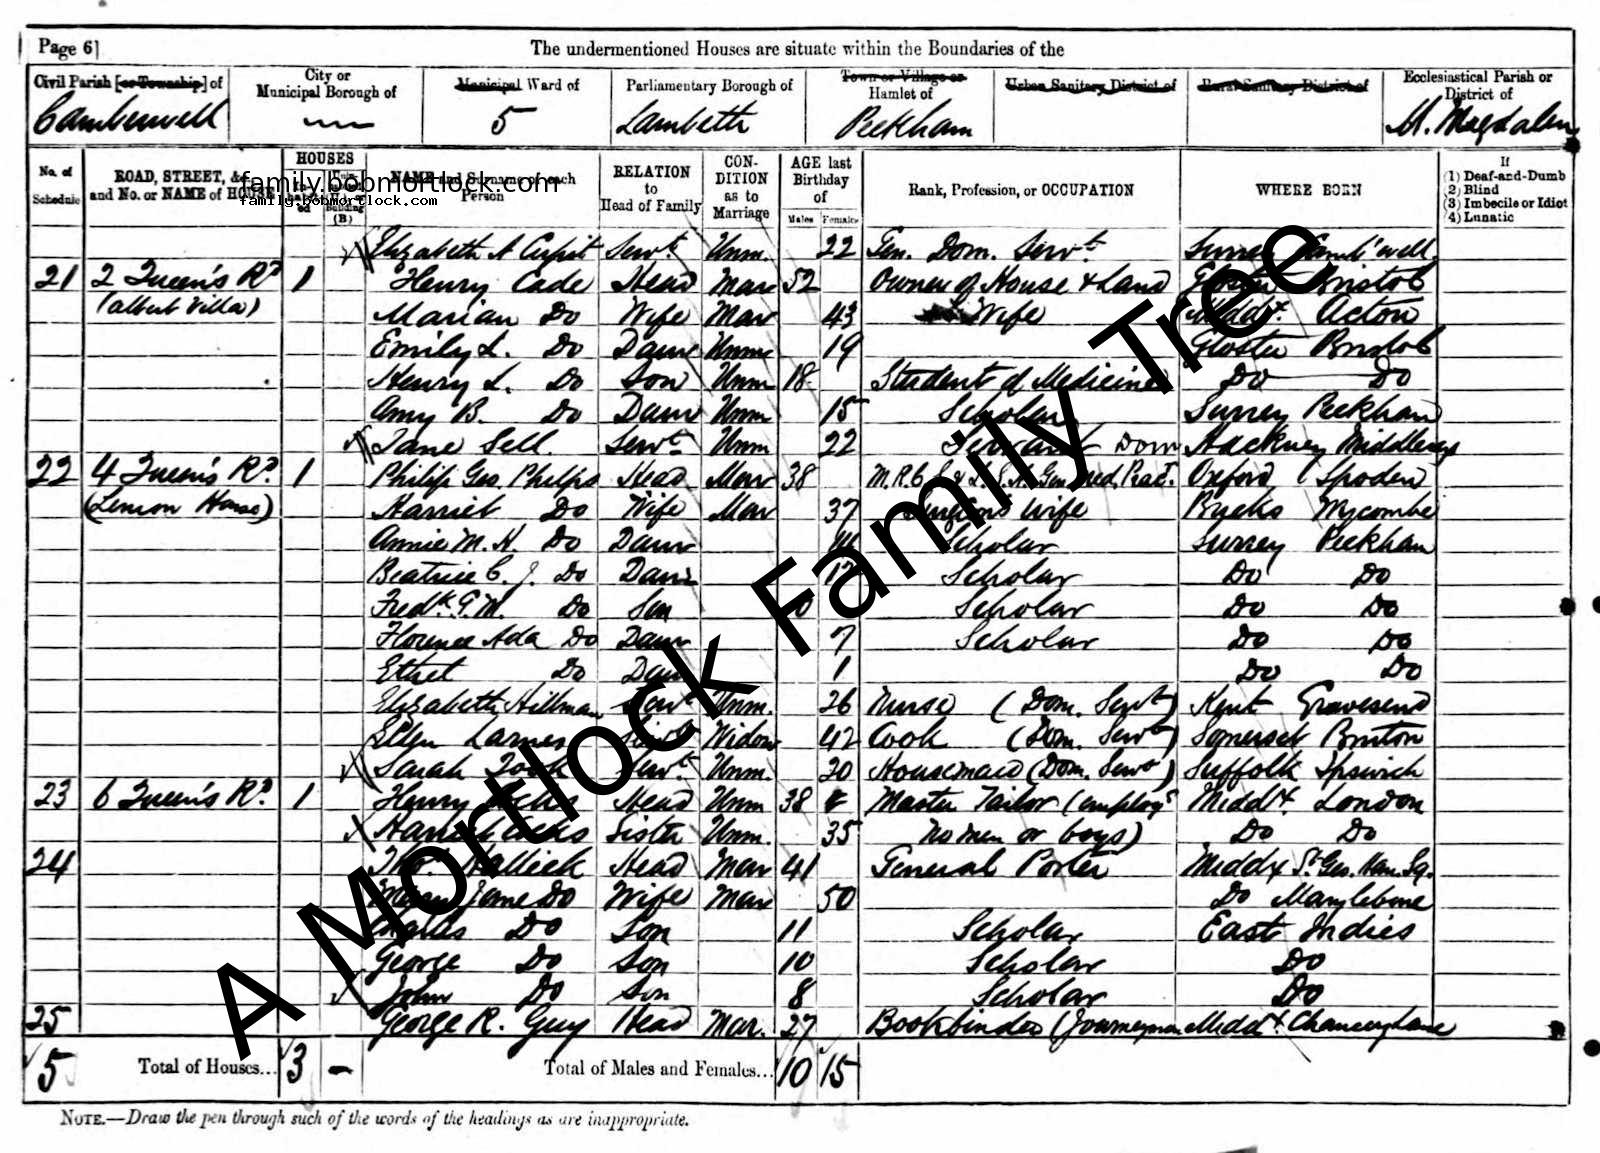 Page 6]
The undermentioned Houses are situate within the Boundaries of the
Civil Parish [or Township] of
City or Municipal Borough of
Municipal Ward of
Parliamentary Borough of
Town or Village or Hamlet of
Urban Sanitary District of
Rural Sanitary District of
Ecclesiastical Parish or District of
Camberwell 5 Lambeth Peckham M. Magdalen
No. of Schedule
ROAD, STREET, &c., and No. or NAME of HOUSE
HOUSES
NAME and Surname of each Person
RELATION to Head of Family
CON-DITION as to Marriage
AGE last Birthday of
Males Females
Rank, Profession, or OCCUPATION
WHERE BORN
If
(1) Deaf-and-Dumb
(2) Blind
(3) Imbecile or Idiot
(4) Lunatic
family.bobmortlock.com
family.bobmortlock.com
Elizabeth A Servt. Unm. 22 Gen. Dom. Servt. Surrey Camb'well
21 2 Queen's Rd 1 Henry Cade Head Mar 52 Owner of House & Land Gloster Bristol
(Albert Villa) Marian Do Wife Mar 43 Wife Middx. Acton
Emily L. Do Daur Unm 19 Gloster Bristol
Henry L. Do Son Unm 18 Student of Medicine Do Do
Amy B. Do Daur Unm 15 Scholar Surrey Peckham
Jane Sell Servt. Unm 22 Servant Dom Hackney Middlesex
22 4 Queen's Rd. 1 Philip Geo. Phelps Head Mar 38 M.R.C.S. & L.S.A. Gen. Med. Pract. Oxford
(Lemon House) Harriet Do Wife Mar 37 Surgeon's Wife Bucks Wycombe
Annie M. H. Do Daur Scholar Surrey Peckham
Beatrice C. J. Do Daur 12 Scholar Do Do
Fredk. G. M. Do Son 10 Scholar Do Do
Florence Ada Do Daur 7 Scholar Do Do
Ethel Do Daur 1 Do Do
Elizabeth Hillman Servt Unm. 26 Nurse (Dom. Servt) Kent Gravesend
Ellen Servt Widow 42 Cook (Dom. Servt) Somerset Bruton
Sarah Servt. Unm. 20 Housemaid (Dom. Servt) Suffolk Ipswich
23 6 Queen's Rd. 1 Henry Head Unm 38 Master Tailor (employs Middx London
Harriet Sister Unm. 35 no men or boys) Do Do
24 Hallick Head Mar 41 General Porter Middx St. Geo. Han. Sq.
Jane Do Wife Mar 50 Do Marylebone
Charles Do Son 11 Scholar East Indies
George Do Son 10 Scholar Do
John Do Son 8 Scholar Do
25 George R. Guy Head Mar. 27 Bookbinder (Journeyman Middx Chancery Lane
5 Total of Houses... 3 – Total of Males and Females... 10 15
NOTE.—Draw the pen through such of the words of the headings as are inappropriate.
A Mortlock Family Tree